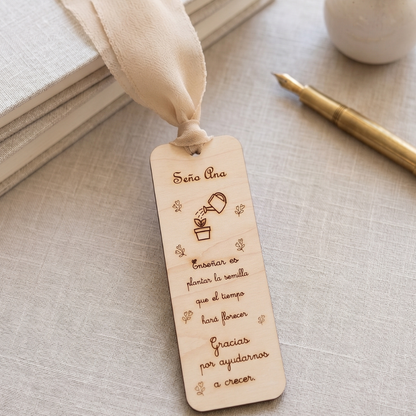 Seño Ana
Enseñar es
plantar la semilla
que el tiempo
hará florecer
Gracias
por ayudarnos
a crecer.